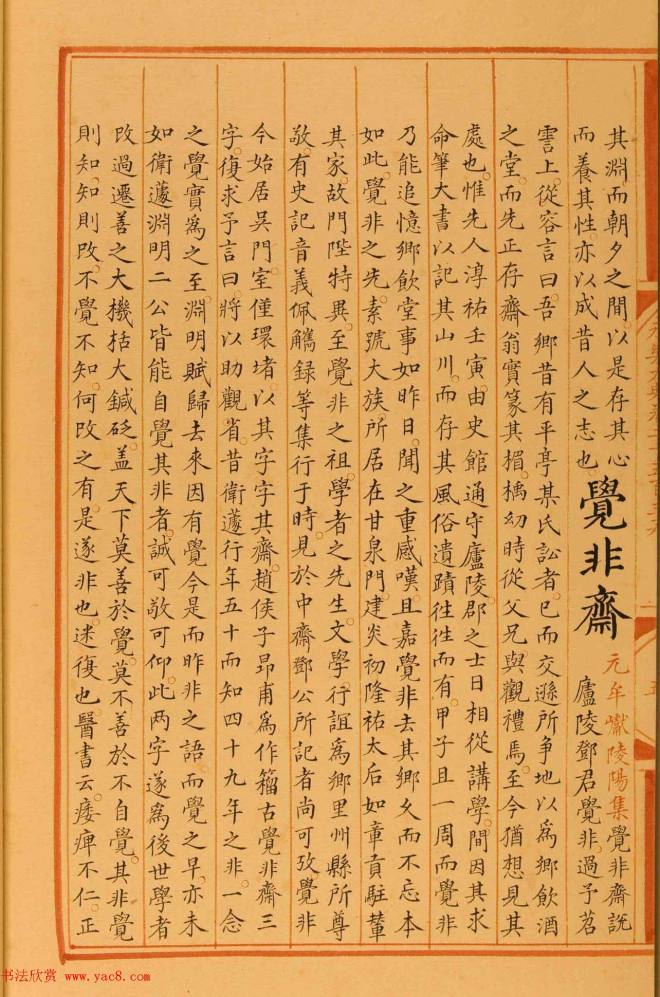 其淵而朝夕之間以是存其心
而養其性亦以成昔人之志也
覺非齋
元牟巘陵陽集覺非齋説
廬陵鄧君覺非過予苕
霅上從容言曰吾鄉昔有平亭某氏訟者已而交遜所爭地以爲鄉飲酒
之堂而先正存齋翁實篆其楣楀幼時從父兄與觀禮焉至今猶想見其
處也惟先人淳祐壬寅由史館通守廬陵郡之士日相從講學間因其求
命筆大書以記其山川而存其風俗遺蹟往往而有甲子且一周而覺非
乃能追憶鄉飲堂事如昨日聞之重感嘆且嘉覺非去其鄉久而不忘本
如此覺非之先素號大族所居在甘泉門建炎初隆祐太后如章貢駐輦
其家故門陛特異至覺非之祖學者之先生文學行誼爲鄉里州縣所尊
敬有史記音義佩觿録等集行于時見於中齋鄧公所記者尚可攷覺非
今始居吳門室僅環堵以其字字其齋趙侯子昂甫爲作籀古覺非齋三
字復求予言曰將以助觀省昔衛蘧行年五十而知四十九年之非一念
之覺實爲之至淵明賦歸去來因有覺今是而昨非之語而覺之早亦未
如衛蘧淵明二公皆能自覺其非者誠可敬可仰此两字遂爲後世學者
改過遷善之大機栝大鍼砭盖天下莫善於覺莫不善於不自覺其非覺
則知知則改不覺不知何改之有是遂非也迷復也醫書云痿痺不仁正
书法欣赏 www.yac8.com